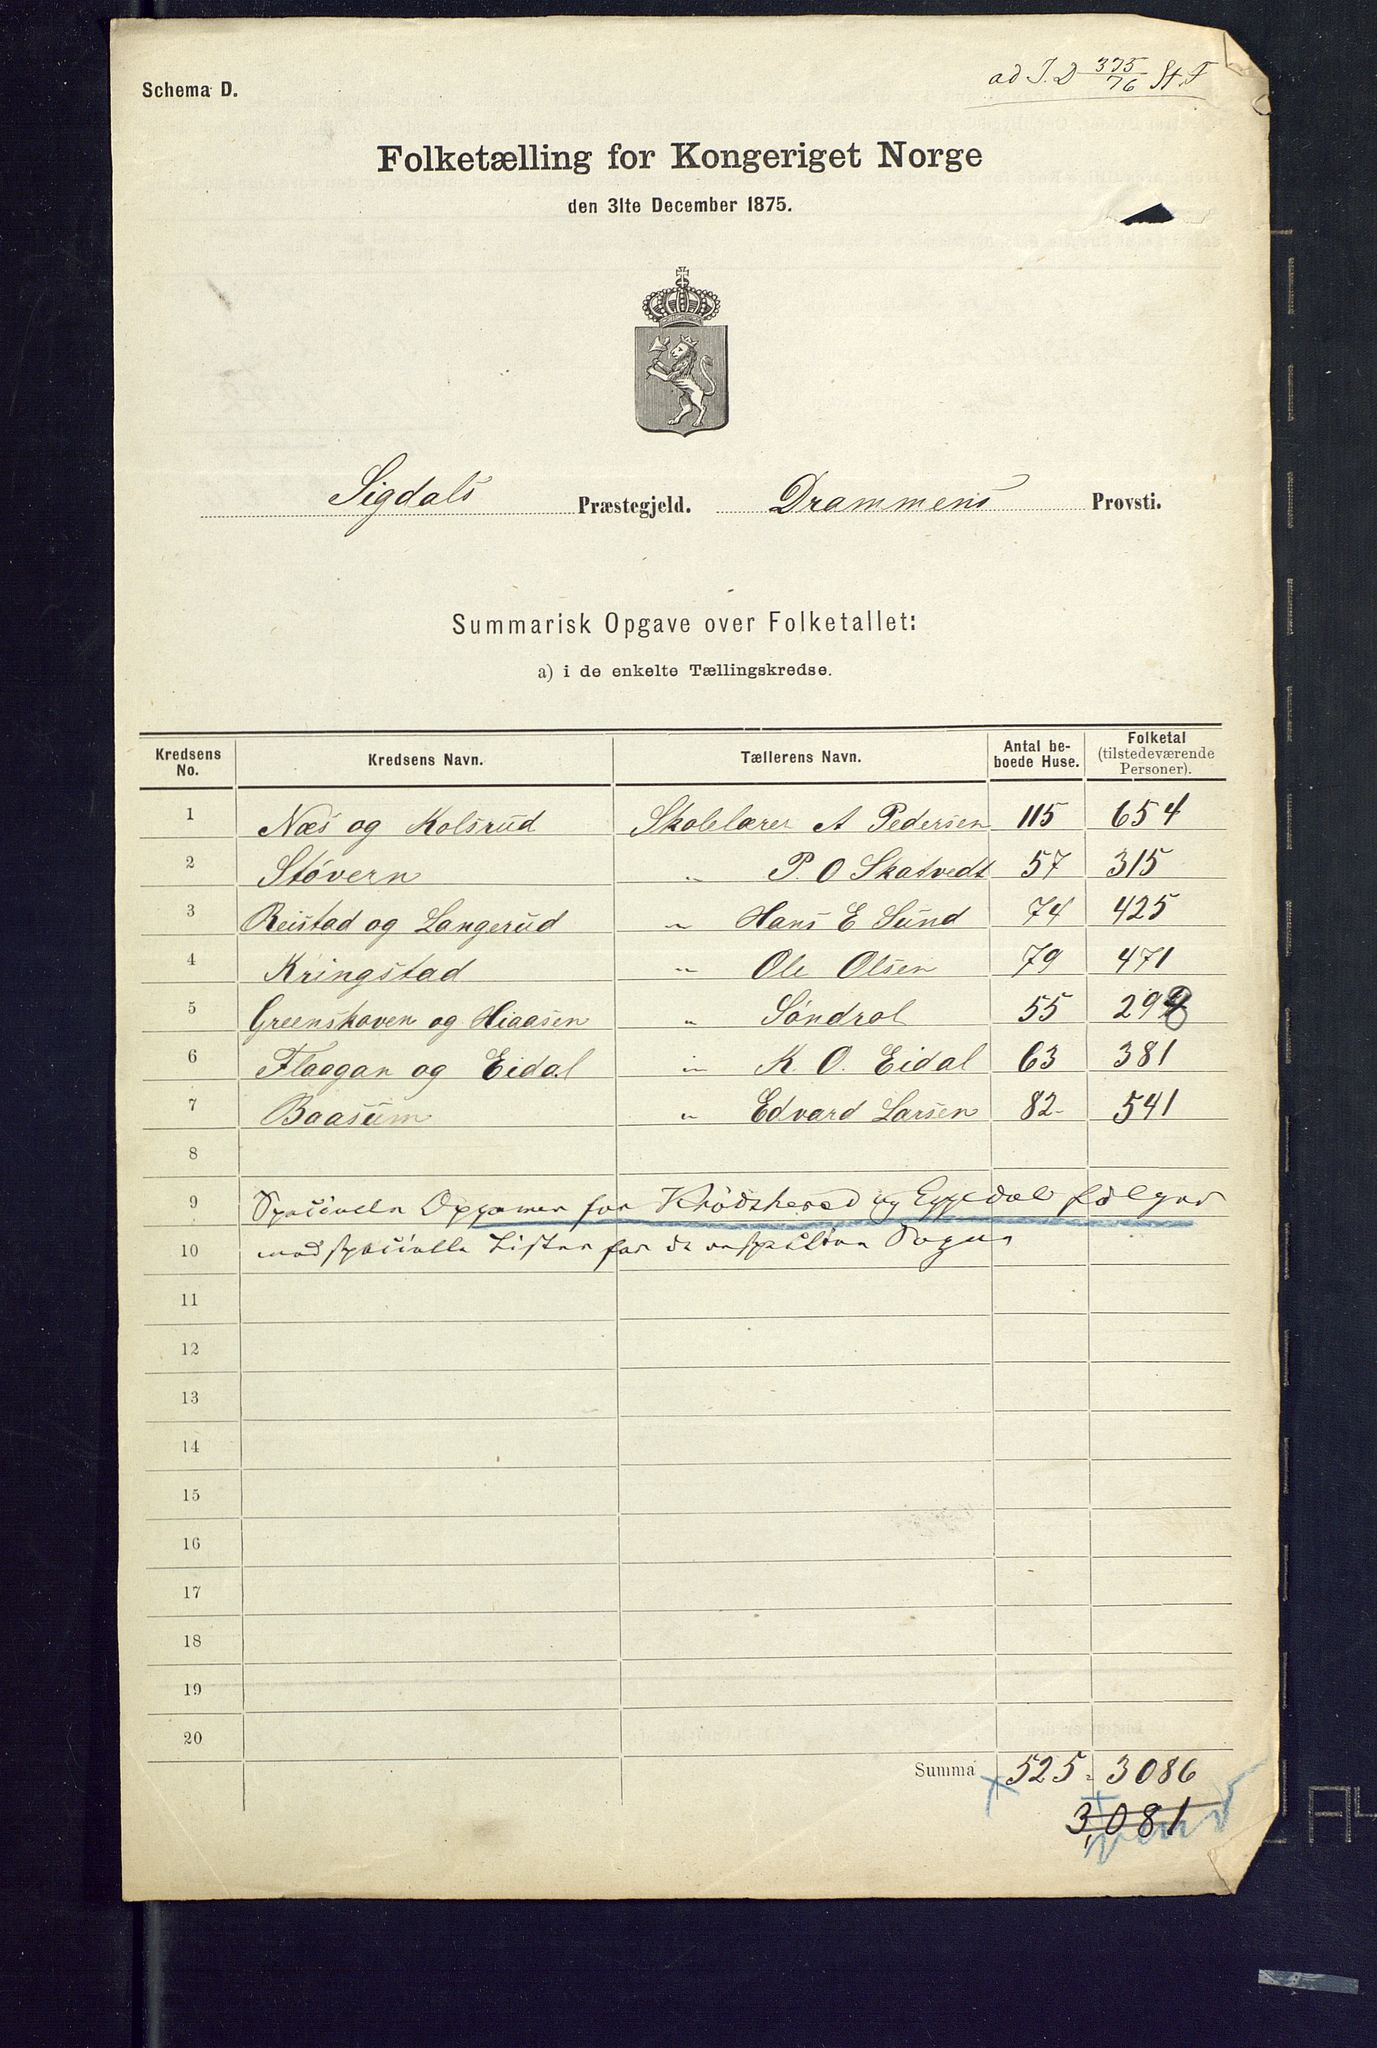 ad J. D 375/76 St. F
Schema D.
Folketælling for Kongeriget Norge
den 31te December 1875.
Sigdals Præstegjeld. Drammens Provsti.
Summarisk Opgave over Folketallet:
a) i de enkelte Tællingskredse.
Kredsens No. Kredsens Navn. Tællerens Navn. Antal beboede Huse. Folketal (tilstedeværende Personer).
1 Næs og Kolsrud Skolelærer A Pedersen 115 654
2 Støvern " P. O Skatvedt 57 315
3 Reistad og Langerud " Hans E Lund 74 425
4 Kringstad " Ole Olsen 79 471
5 Greenskoven og Hiaasen " Søndrol 55 29
6 Flaagan og Eidal " K. O. Eidal 63 381
7 Baasum " Edvard Larsen 82 541
8
9 Specielle Opgaver for Krødsherred og Eggedal følger
10 med specielle Lister for de respective Sogne
11
12
13
14
15
16
17
18
19
20
Summa 525 3086
3,081